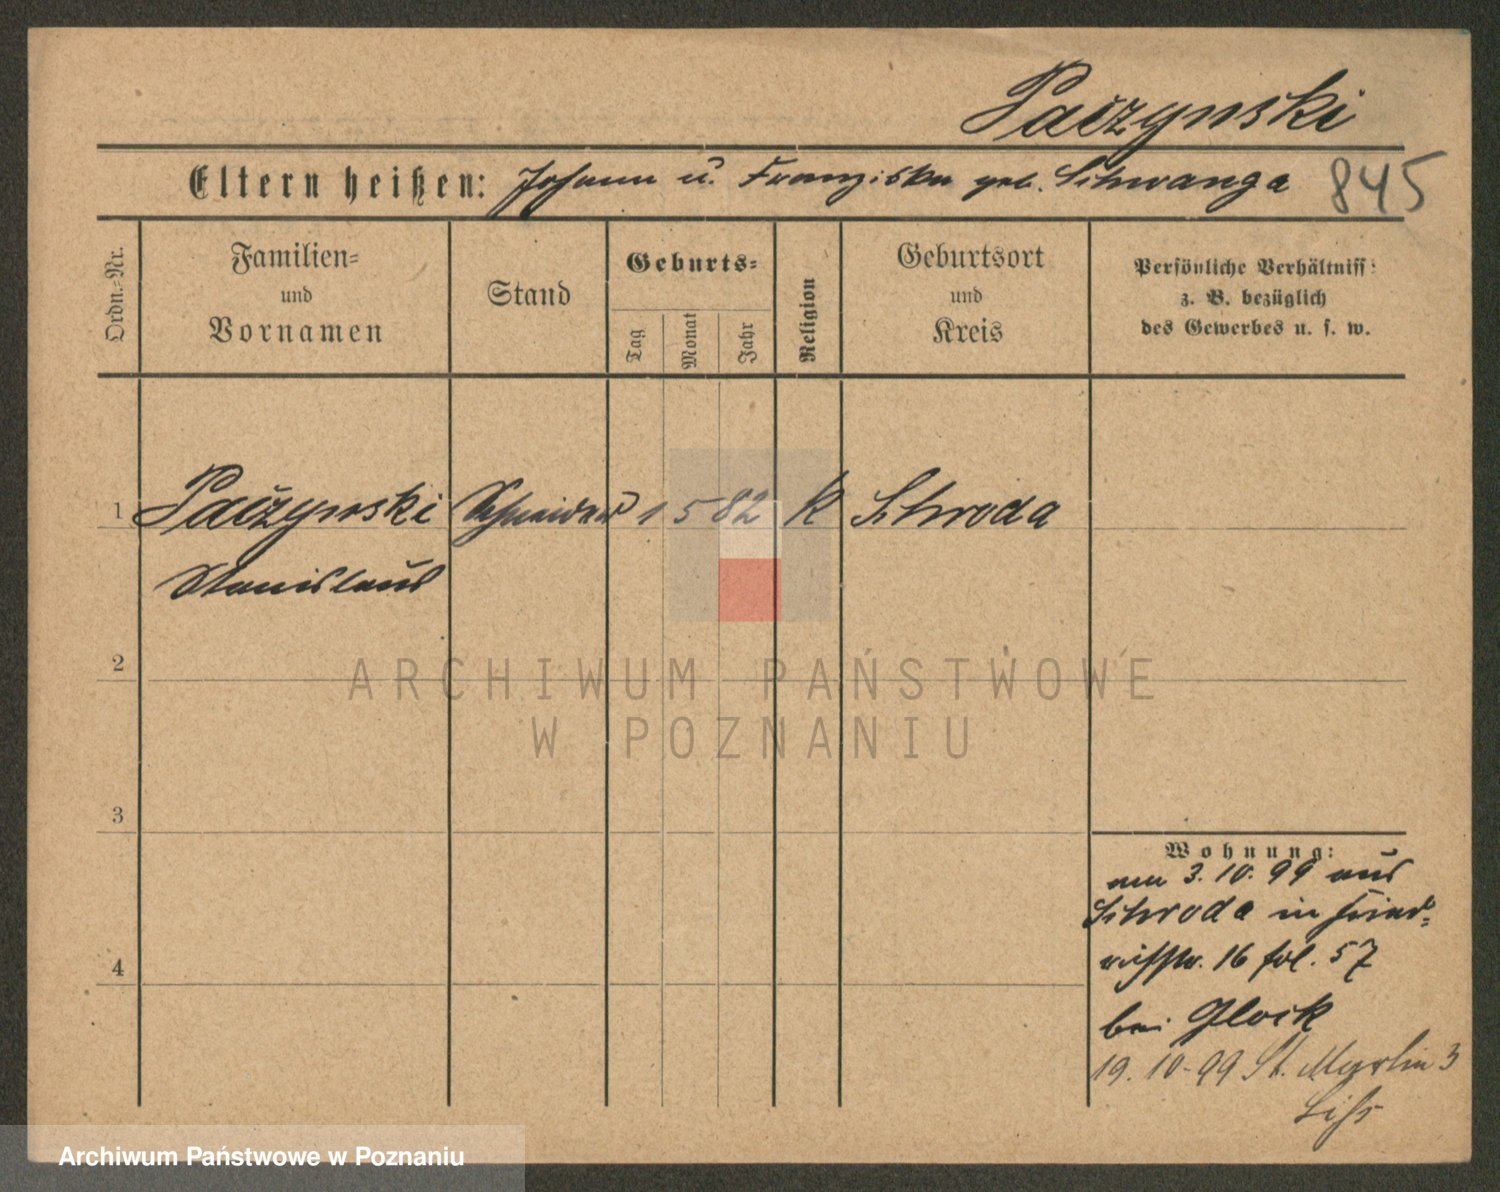 Pačzynski
Eltern heißen: Johann u. Franziska geb. Schwanga 845
Ordn.-Nr.
Familien-
und
Vornamen
Stand
Geburts-
Tag
Monat
Jahr
Religion
Geburtsort
und
Kreis
Persönliche Verhältniss:
z. B. bezüglich
des Gewerbes u. s. w.
1 Pačzynski Schneider 1 5 82 K Schroda
Stanislaus
2
3
4
Wohnung:
am 3.10.99 aus
Schroda in Fried-
richstr. 16 fol. 57
bei Glock
19.10-99 St. Martin 3
ARCHIWUM PAŃSTWOWE
W POZNANIU
Archiwum Państwowe w Poznaniu